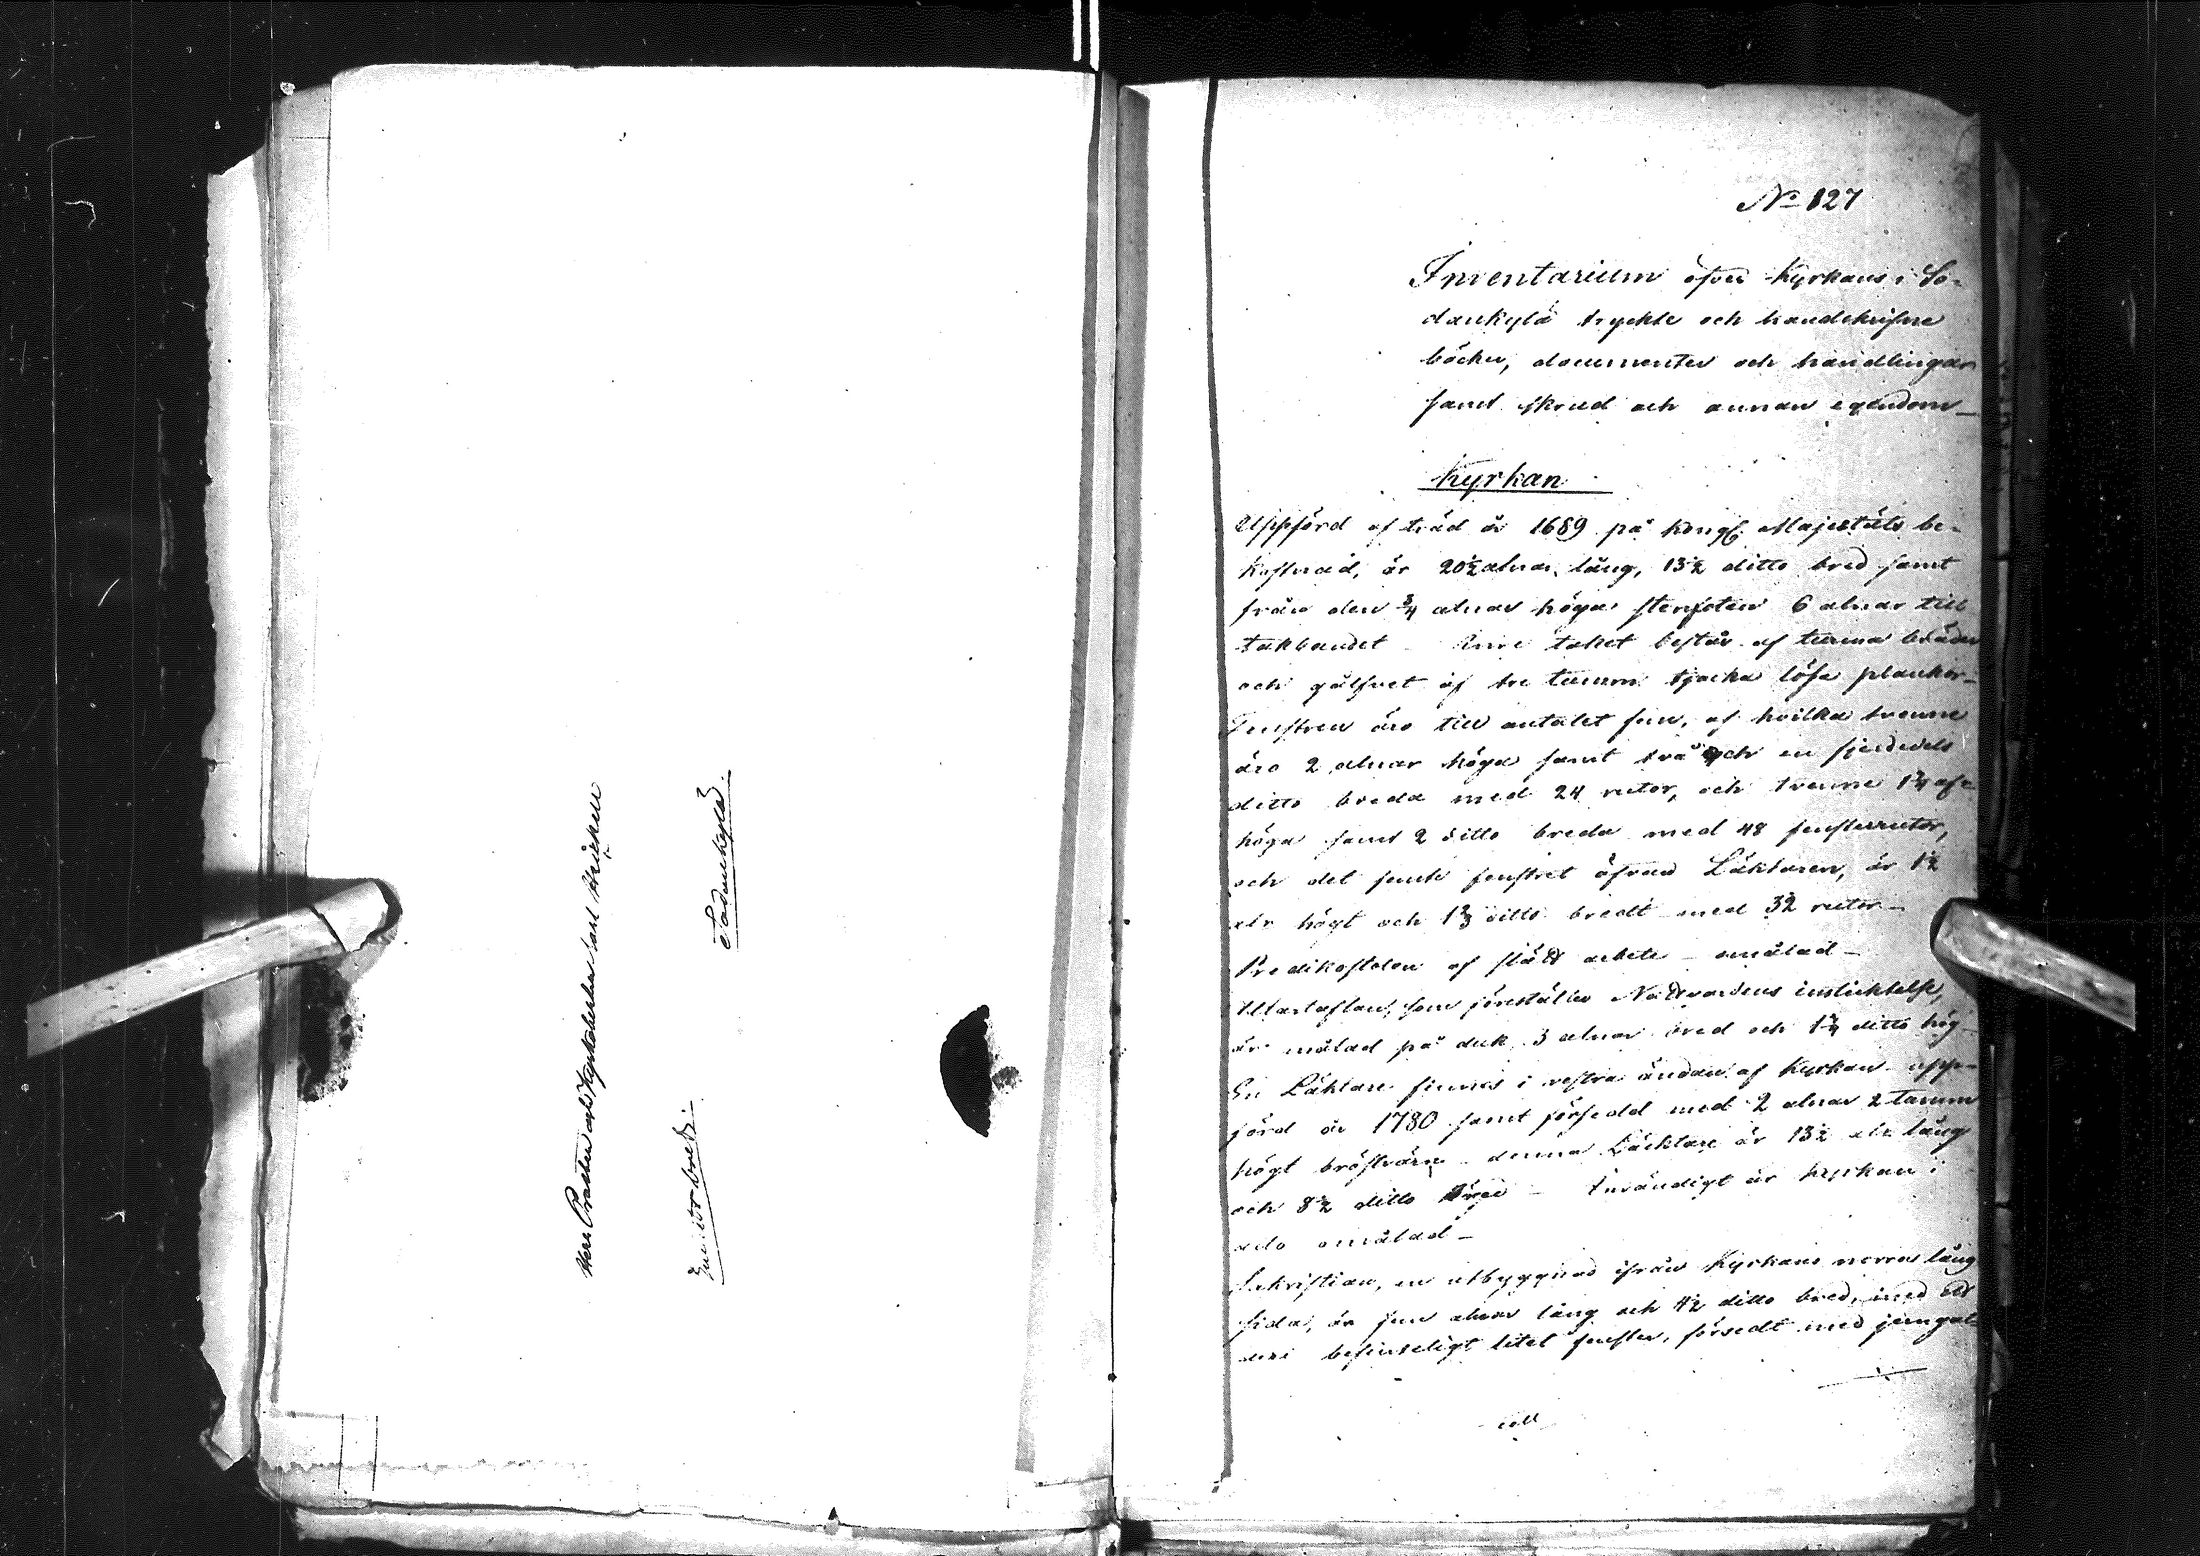 Herr Prosten och Kyrkoherden Carl Heickell
Sodankylä.
Embetsbref.
No 127
Inventarium öfver Kyrkans i So-
dankylä tryckte och handskrifne
böcker, documenter och handlingar
samt skrud och annan egendom_
Kyrkan
Uppförd af träd år 1689 på Kongl. Majestäts be-
kostnad, är 20½ alnar lång, 13½ ditto bred samt
från den ¾ alnar höga stenfoten 6 alnar till
takbandet _ Inre taket består af tunna bräder
och gålfvet af tre tumm tjocka lösa plankor_
Fenstren äro till antalet fem, af hvilka tvenne
äro 2 alnar höga samt två och en fjerdedels
ditto breda med 24 rutor, och tvenne 1¾ aln
höga samt 2 ditto breda med 48 fensterrutor,
och det femte fenstret öfvan Läktaren, är 1½
aln högt och 1⅔ ditto bredt med 32 rutor_
Predikostolen af slätt arbete _ omålad _
Altartaflan, som föreställer Nattvardens instiktelse,
är målad på duk 3 alnar bred och 1¾ ditto hög_
En Läktare finnes i vestra ändan af Kyrkan upp-
förd år 1780 samt försedd med 2 alnar 2 tumm
högt bröstvärn _ denna Läcktare är 13½ aln lång
och 8½ ditto bred _ Invändigt är kyrkan i
ado omålad _
Sakristian, en utbyggnad ifrån Kyrkans norra lång
sida, är fem alnar lång och 4½ ditto bred, med ett
deri befinteligt litet fenster, försedt med jerngal